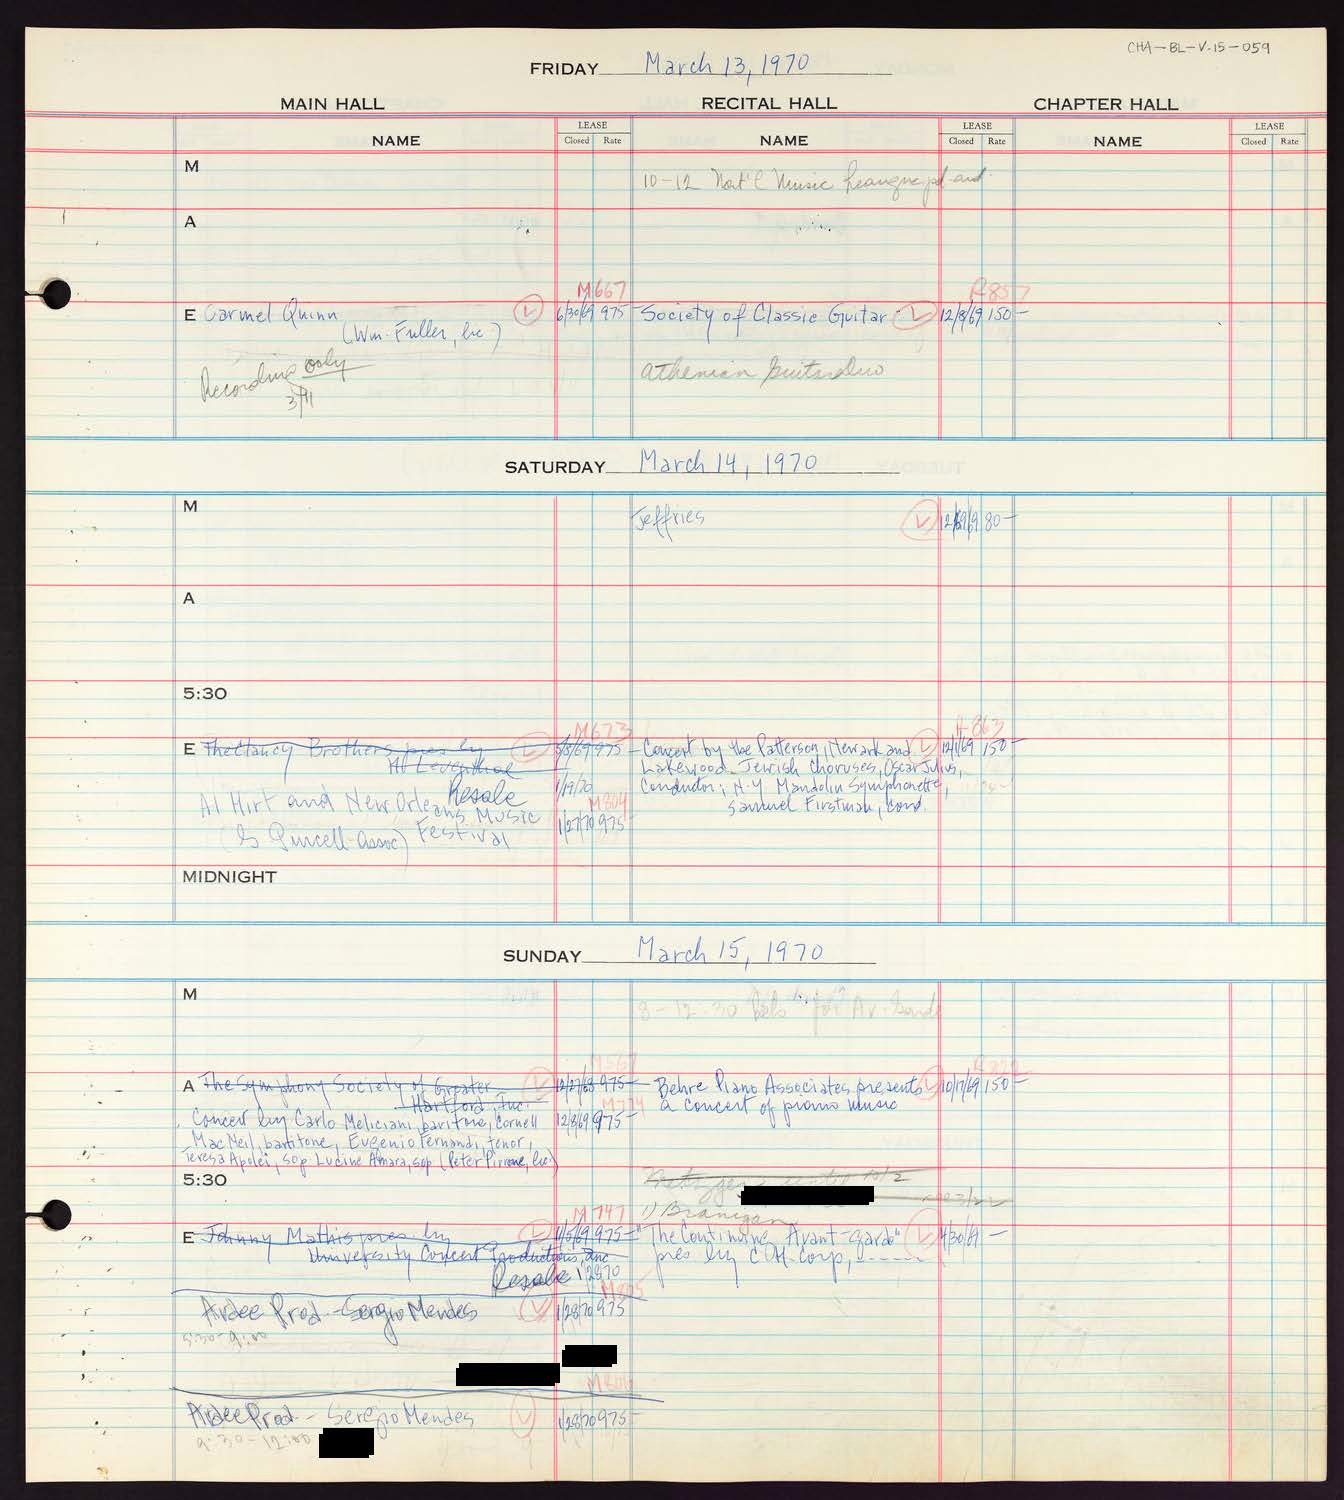 CHA-BL-V.15-059
FRIDAY March 13, 1970
MAIN HALL RECITAL HALL CHAPTER HALL
NAME LEASE Closed Rate NAME LEASE Closed Rate NAME LEASE Closed Rate
M 10-12 Nat'l Music League
A
M667 R857
E Carmel Quinn 6/30/69 975- Society of Classic Guitar 12/8/69 150-
(Wm. Fuller, Inc.)
Recording only Athenian Guitar Duo
3/11
SATURDAY March 14, 1970
M Jeffries 80-
A
5:30
M673 R863
E The Clancy Brothers pres by 5/8/69 975- Concert by the Patterson, Newark and 12/1/69 150-
H. Leventhal Lakewood Jewish Choruses, Oscar Julius,
Resale 1/19/70 Conductor; N.Y. Mandolin Symphonette,
Al Hirt and New Orleans Music M804 Samuel Firstman, Cond.
(G Purcell-Assoc) Festival 1/27/70 975-
MIDNIGHT
SUNDAY March 15, 1970
M 8-12:30 for Av-Garde
M567
A The Symphony Society of Greater 12/27/68 975- Behre Piano Associates presents 10/17/69 150-
Hartford, Inc. M774 a concert of piano music
Concert by Carlo Meliciani, baritone, Cornell 12/8/69 975-
MacNeil, baritone, Eugenio Fernandi, tenor,
Teresa Apolei, sop Lucine Amara, sop (Peter Pirrone, Inc.)
5:30
M747 1) Branigan
E Johnny Mathis pres. by 11/5/69 975- "The Continuing Avant-garde" 4/30/69 -
University Concert Productions, Inc pres by CH Corp,
Resale 1/28/70
Ardee Prod - Sergio Mendes M805 1/28/70 975
5:30-9:00
M806
Ardee Prod - Sergio Mendes 1/28/70 975-
9:30-12:00